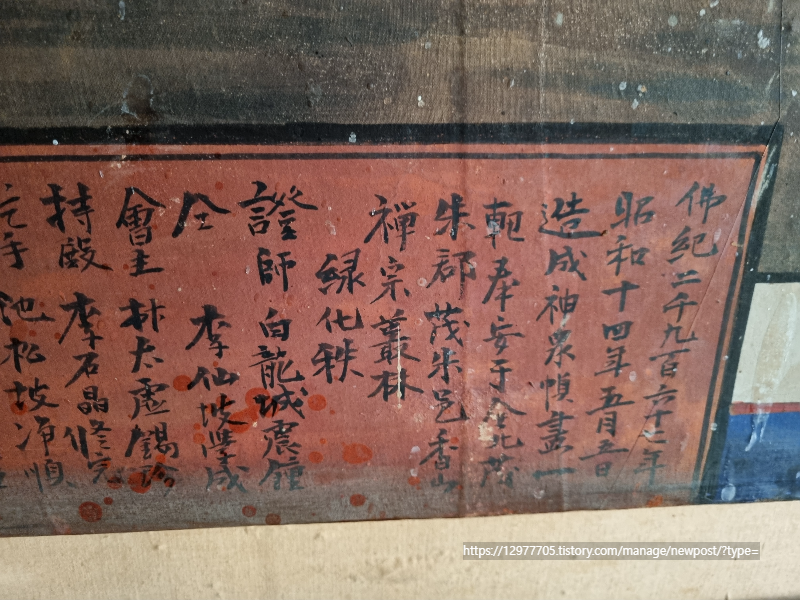 佛紀二千九百六十二年
昭和十四年五月五日
造成神衆幀畫一
軸奉安于全北茂
朱郡茂朱邑香山
禪宗叢林
緣化秩
證師 白龍城震鍾
仝 李仙坡學成
會主 朴太虛錫珍
持殿 李石晶修完
池松坡净順
https://12977705.tistory.com/manage/newpost/?type=